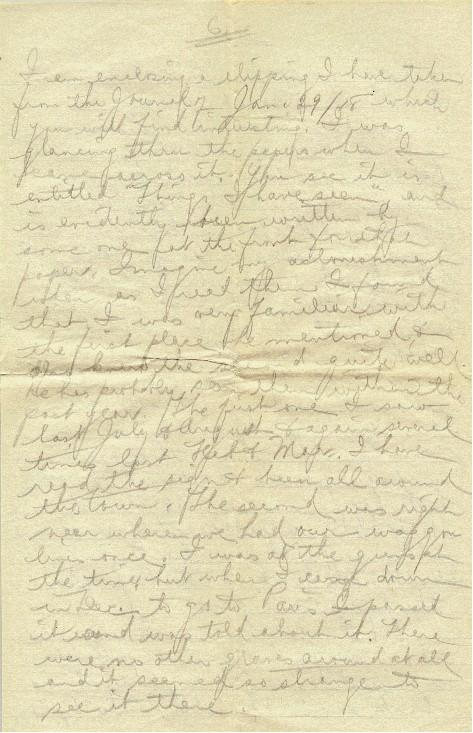 6
I am enclosing a clipping I have taken
from the Journal of Jan. 29/18 which
you will find interesting. I was
glancing thru the papers when I
came across it. You see it is
entitled "Things I have seen" and
is evidently been written by
some one at the front for the
papers. Imagine my astonishment
when as I read them I found
that I was very familiar with
the first place he mentioned &
also knew the second quite well.
He has probably seen them within the
past year. The first one I saw
last July & August & again several
times last Feb & Mar. I have
read the sign & been all around
the town. The second was right
near where we had our wagon
lines once. I was at the guns at
the time but when I came down
in Dec. to go to Paris I passed
it and was told about it. There
were no other graves around at all
and it seemed so strange to
see it there.